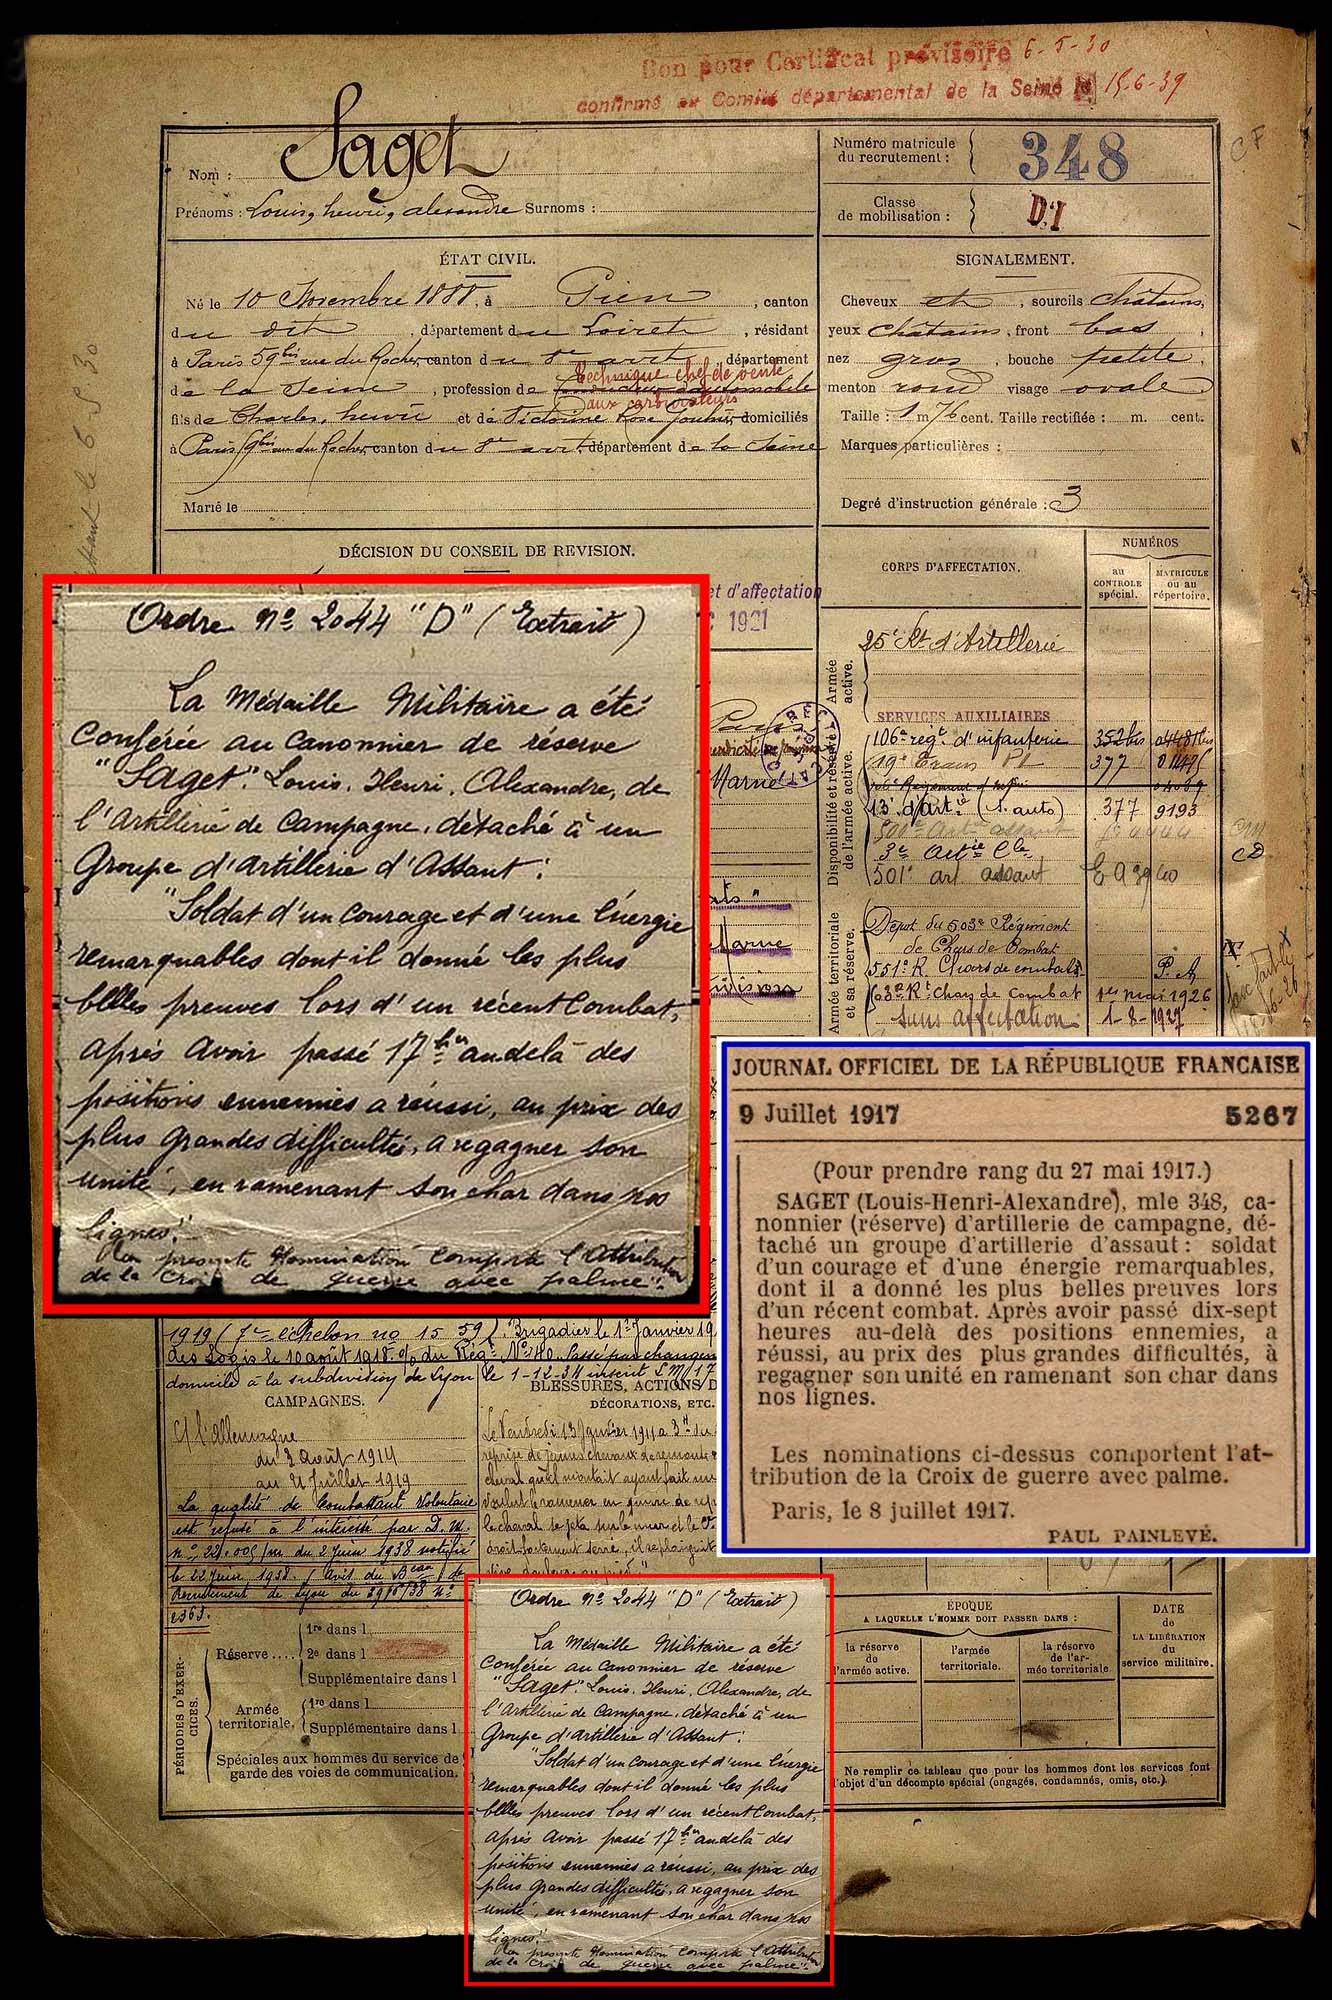 Bon pour Certificat provisoire 6-5-30
confirmé au Comité départemental de la Seine le 15-6-39
Nom : Saget
Prénoms : Louis, henri, alexandre Surnoms :
Numéro matricule
du recrutement : 348
Classe
de mobilisation : D.I
CF
ÉTAT CIVIL.
Né le 10 Novembre 1888, à Gien, canton
du dit, département du Loiret, résidant
à Paris 59bis rue du Rocher, canton du 8e arrt, département
de la Seine, profession de conducteur automobile
technique chef de vente
aux carburateurs
fils de Charles, henri et de Victorine Rose domiciliés
à Paris 59bis rue du Rocher, canton du 8e arrt, département de la Seine
Marié le
SIGNALEMENT.
Cheveux et, sourcils châtains,
yeux châtains, front bas,
nez gros, bouche petite,
menton rond visage ovale
Taille : 1 m 74 cent. Taille rectifiée : m. cent.
Marques particulières :
Degré d'instruction générale : 3
DÉCISION DU CONSEIL DE REVISION.
et d'affectation
1921
CORPS D'AFFECTATION.
NUMÉROS
au
CONTROLE
spécial.
MATRICULE
ou au
répertoire.
Armée
active.
25e Rt d'Artillerie
Disponibilité et réserve
de l'armée active.
SERVICES AUXILIAIRES
106e régt d'infanterie 352bis
19e Train 377
13e d'artie (s. auts) 377 9193
500e artie assaut
3e Artie Cle
501e art assaut
Armée territoriale
et sa réserve.
Dépot du 503e Régiment
de Chars de Combat
551e R. Chars de combats P.A
Rt Chars de Combat 1er mai 1926
sans affectation 1-8-1927
Marne
Ordre No 2044 "D" (Extrait)
La Médaille Militaire a été
Conférée au Canonnier de réserve
"Saget". Louis, Henri, Alexandre, de
l'Artillerie de Campagne, détaché à un
Groupe d'Artillerie d'Assaut :
"Soldat d'un courage et d'une énergie
remarquables dont il donné les plus
belles preuves lors d'un récent Combat,
après avoir passé 17 hres au delà des
positions ennemies a réussi, au prix des
plus grandes difficultés, a regagner son
unité, en ramenant son char dans nos
lignes".
La présente Nomination comporte l'Attribution
de la Croix de guerre avec palme".
JOURNAL OFFICIEL DE LA RÉPUBLIQUE FRANCAISE
9 Juillet 1917 5267
(Pour prendre rang du 27 mai 1917.)
SAGET (Louis-Henri-Alexandre), mle 348, ca-
nonnier (réserve) d'artillerie de campagne, dé-
taché un groupe d'artillerie d'assaut : soldat
d'un courage et d'une énergie remarquables,
dont il a donné les plus belles preuves lors
d'un récent combat. Après avoir passé dix-sept
heures au-delà des positions ennemies, a
réussi, au prix des plus grandes difficultés, à
regagner son unité en ramenant son char dans
nos lignes.
Les nominations ci-dessus comportent l'at-
tribution de la Croix de guerre avec palme.
Paris, le 8 juillet 1917.
PAUL PAINLEVÉ.
1919 (7e échelon no 1559). Brigadier le 1er Janvier 19
des Logis le 10 août 1918. Passé par changem
domicile à la subdivision de Lyon le 1-12-34
CAMPAGNES.
C/ l'allemagne
du 3 août 1914
au 21 Juillet 1919
La qualité de Combattant Volontaire
est refusé à l'intéressé par D.M.
du 2 Juin 1938 notifié
le 22 Juin 1938. (avis du Beau de
Recrutement de Lyon
2363.
BLESSURES, ACTIONS D
DÉCORATIONS, ETC.
Le Vendredi 13 Janvier 1911 à
reprise de jeunes chevaux de remonte
cheval qu'il montait ayant fait un
voulut le ramener
le cheval se jeta sur le mur et le
droit fortement serré, il se plaignit
PÉRIODES D'EXER-
CICES.
Réserve....
1re dans l
2e dans l
Supplémentaire dans l
Armée
territoriale.
1re dans l
Supplémentaire dans l
Spéciales aux hommes du service de
garde des voies de communication.
ÉPOQUE
A LAQUELLE L'HOMME DOIT PASSER DANS :
la réserve
de
l'armée active.
l'armée
territoriale.
la réserve
de l'ar-
mée territoriale.
DATE
de
LA LIBÉRATION
du
service militaire.
Ne remplir ce tableau que pour les hommes dont les services font
l'objet d'un décompte spécial (engagés, condamnés, omis, etc.)
Ordre No 2044 "D" (Extrait)
La Médaille Militaire a été
Conférée au Canonnier de réserve
"Saget". Louis, Henri, Alexandre, de
l'Artillerie de Campagne, détaché à un
Groupe d'Artillerie d'Assaut :
"Soldat d'un courage et d'une énergie
remarquables dont il donné les plus
belles preuves lors d'un récent Combat,
après avoir passé 17 hres au delà des
positions ennemies a réussi, au prix des
plus grandes difficultés, a regagner son
unité, en ramenant son char dans nos
lignes".
La présente Nomination comporte l'Attribution
de la Croix de guerre avec palme".